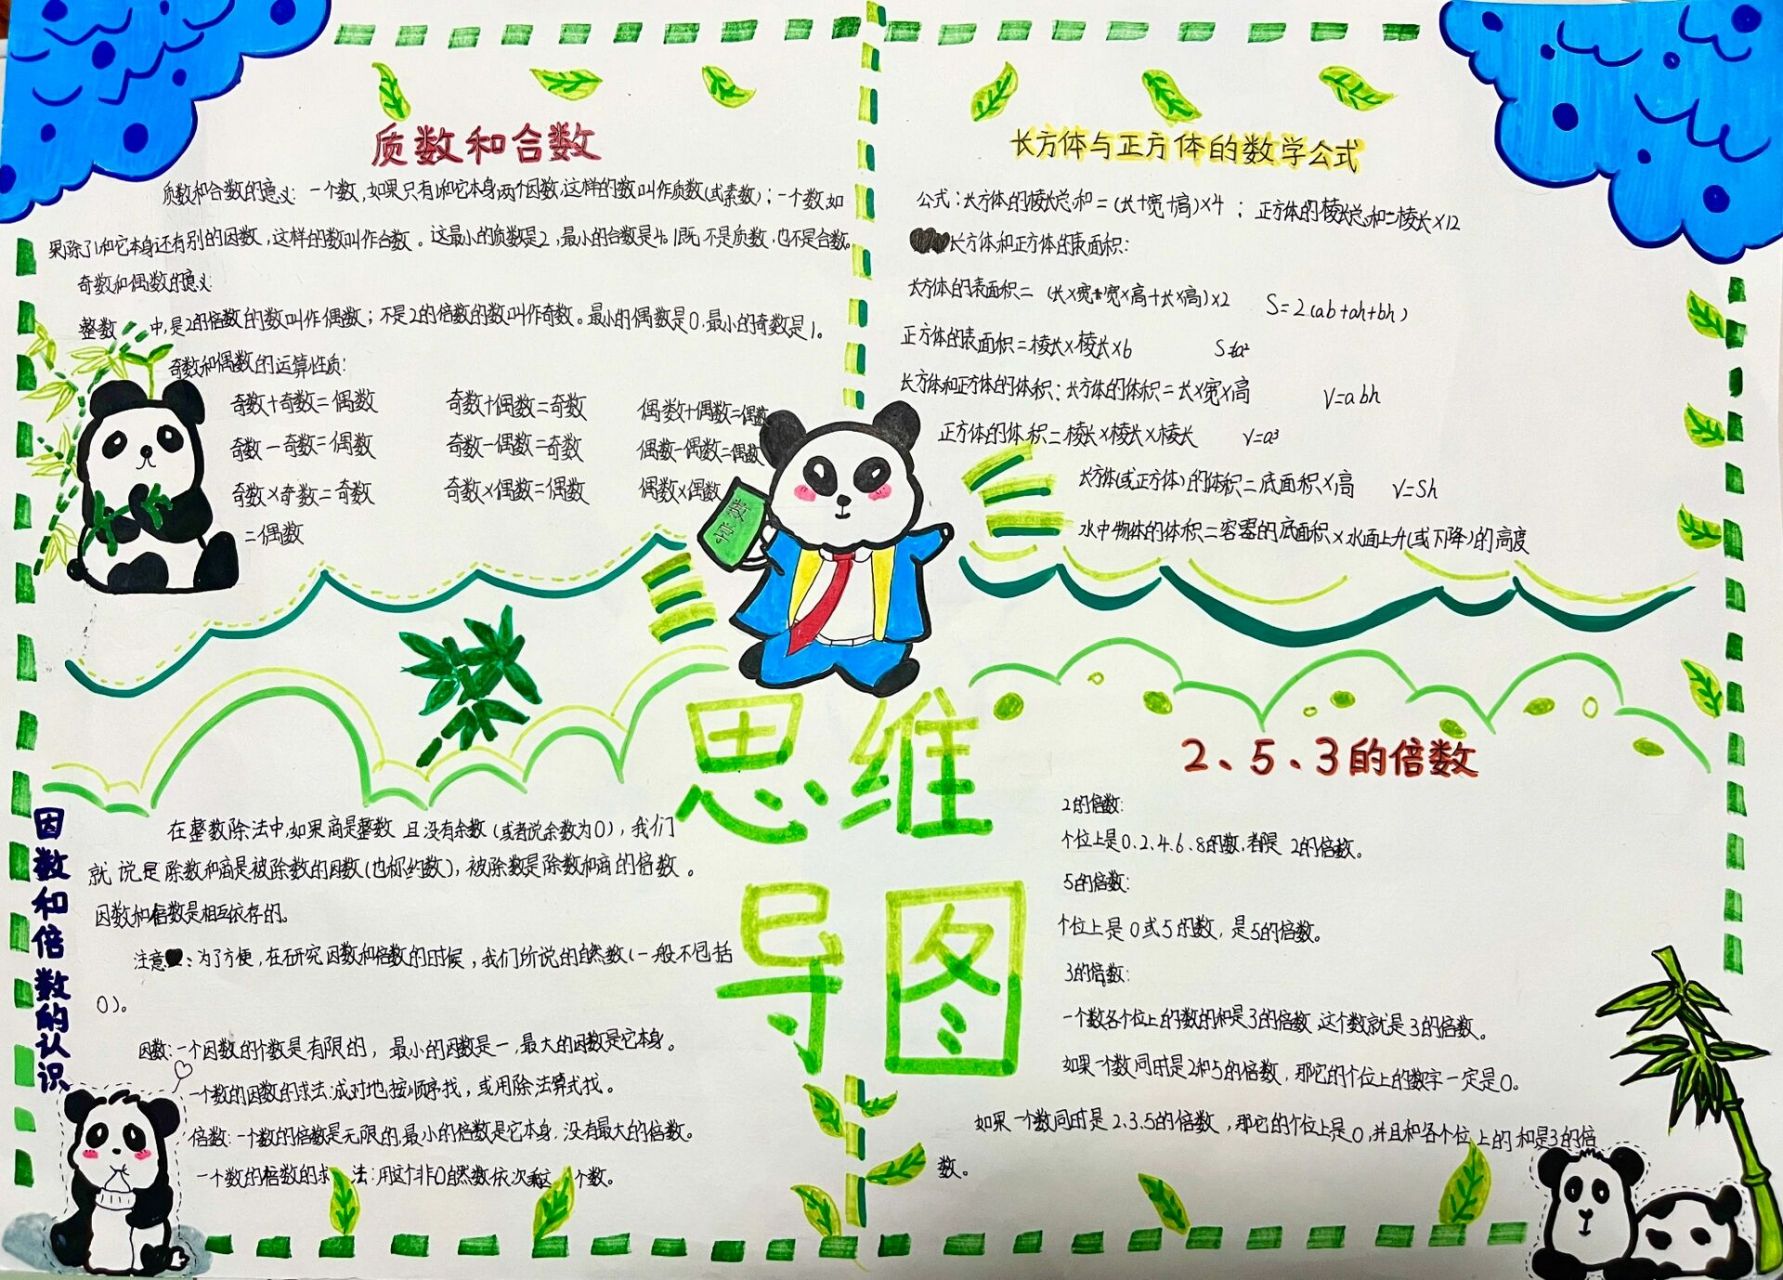 质数和合数
质数和合数的意义：一个数，如果只有1和它本身两个因数，这样的数叫作质数（或素数）；一个数，如
果除了1和它本身还有别的因数，这样的数叫作合数。这最小的质数是2，最小的合数是4。1既不是质数，也不是合数。
奇数和偶数的意义：
整数中，是2的倍数的数叫作偶数；不是2的倍数的数叫作奇数。最小的偶数是0，最小的奇数是1。
奇数和偶数的运算性质：
奇数+奇数=偶数 奇数+偶数=奇数 偶数+偶数=偶数
奇数-奇数=偶数 奇数-偶数=奇数 偶数-偶数=偶数
奇数×奇数=奇数 奇数×偶数=偶数 偶数×偶数
=偶数
长方体与正方体的数学公式
公式：长方体的棱长总和=（长+宽+高）×4；正方体的棱长总和=棱长×12
长方体和正方体的表面积：
长方体的表面积=（长×宽+宽×高+长×高）×2 S=2(ab+ah+bh)
正方体的表面积=棱长×棱长×6
长方体和正方体的体积：长方体的体积=长×宽×高 V=abh
正方体的体积=棱长×棱长×棱长 V=a³
长方体（或正方体）的体积=底面积×高 V=Sh
水中物体的体积=容器的底面积×水面上升（或下降）的高度
数学
思维
导图
因数和倍数的认识
在整数除法中，如果商是整数且没有余数（或者说余数为0），我们
就说是除数和商是被除数的因数（也称约数），被除数是除数和商的倍数。
因数和倍数是相互依存的。
注意：为了方便，在研究因数和倍数的时候，我们所说的自然数（一般不包括
0）。
因数：一个因数的个数是有限的，最小的因数是一，最大的因数是它本身。
一个数的因数的求法：成对地按顺序找，或用除法算式找。
倍数：一个数的倍数是无限的，最小的倍数是它本身，没有最大的倍数。
一个数的倍数的求法：用这个非0自然数依次乘 个数。
2、5、3的倍数
2的倍数：
个位上是0.2.4.6.8的数，都是2的倍数。
5的倍数：
个位上是0或5的数，是5的倍数。
3的倍数：
一个数各个位上的数的和是3的倍数，这个数就是3的倍数。
如果一个数同时是2和5的倍数，那它的个位上的数字一定是0。
如果一个数同时是2.3.5的倍数，那它的个位上是0，并且和各个位上的和是3的倍
数。